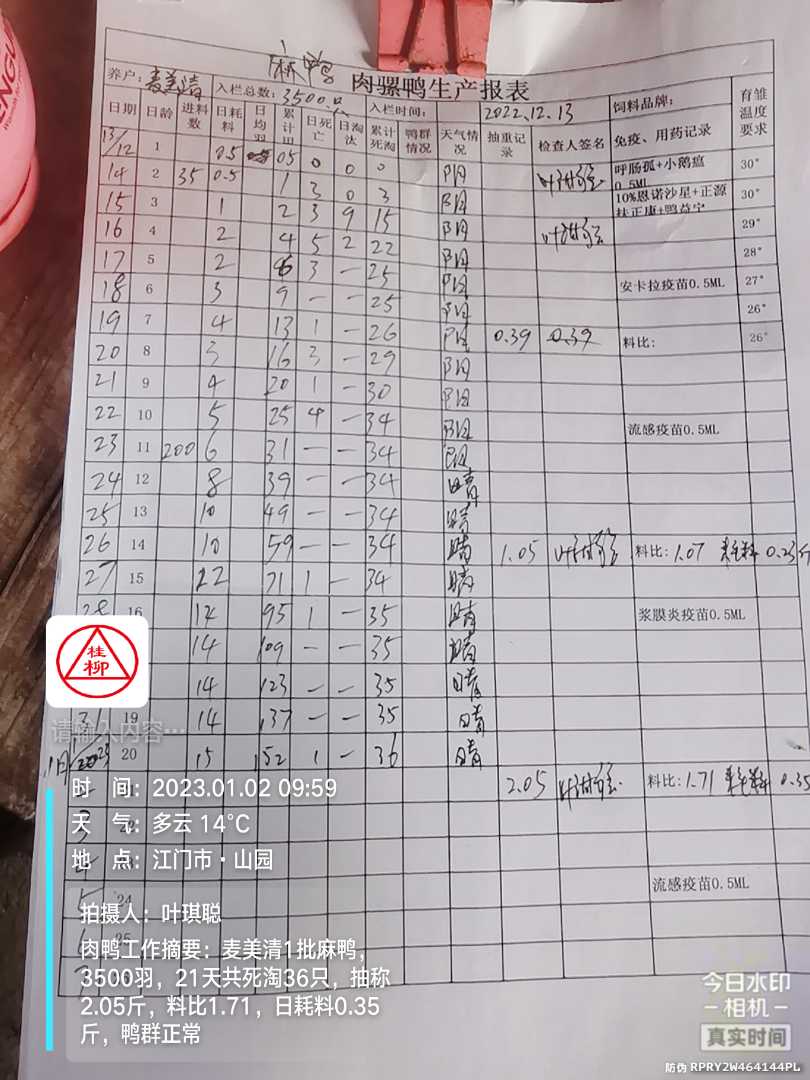 麻鸭
肉骡鸭生产报表
养户：麦美清 入栏总数：3500只 入栏时间：2022.12.13 饲料品牌： 育雏温度要求
日期 日龄 进料数 日耗料 日均羽 累计 日死亡 日淘汰 累计死淘 鸭群情况 天气情况 抽重记录 检查人签名 免疫、用药记录
13/12 1 0.5 0.5 0 0 0 阴 呼肠孤+小鹅瘟0.5ML 30°
14 2 35 0.5 1 3 0 3 阴 10%恩诺沙星+正源扶正康+鸭益宁 30°
15 3 1 2 3 9 15 阴 29°
16 4 2 4 5 2 22 阴 28°
17 5 2 6 3 — 25 阴 安卡拉疫苗0.5ML 27°
18 6 3 9 — — 25 阴 26°
19 7 4 13 1 — 26 阴 0.39 0.39 料比: 26°
20 8 3 16 3 — 29 阴
21 9 4 20 1 — 30 阴
22 10 5 25 4 — 34 阴 流感疫苗0.5ML
23 11 200 6 31 — — 34 阴
24 12 8 39 — — 34 晴
25 13 10 49 — — 34 晴
26 14 10 59 — — 34 晴 1.05 料比: 1.07 耗料 0.23斤
27 15 12 71 1 — 34 晴
28 16 14 95 1 — 35 晴 浆膜炎疫苗0.5ML
14 109 — 35 晴
14 123 — — 35 晴
31 19 14 137 — — 35 晴
20 15 152 1 — 36 晴
2.05 料比: 1.71 耗料 0.35
3
流感疫苗0.5ML
24
25
桂柳
请输入内容…
时 间：2023.01.02 09:59
天 气：多云 14℃
地 点：江门市·山园
拍摄人：叶琪聪
肉鸭工作摘要：麦美清1批麻鸭，
3500羽，21天共死淘36只，抽称
2.05斤，料比1.71，日耗料0.35
斤，鸭群正常
今日水印
相机
真实时间
防伪 RPRY2W464144PL